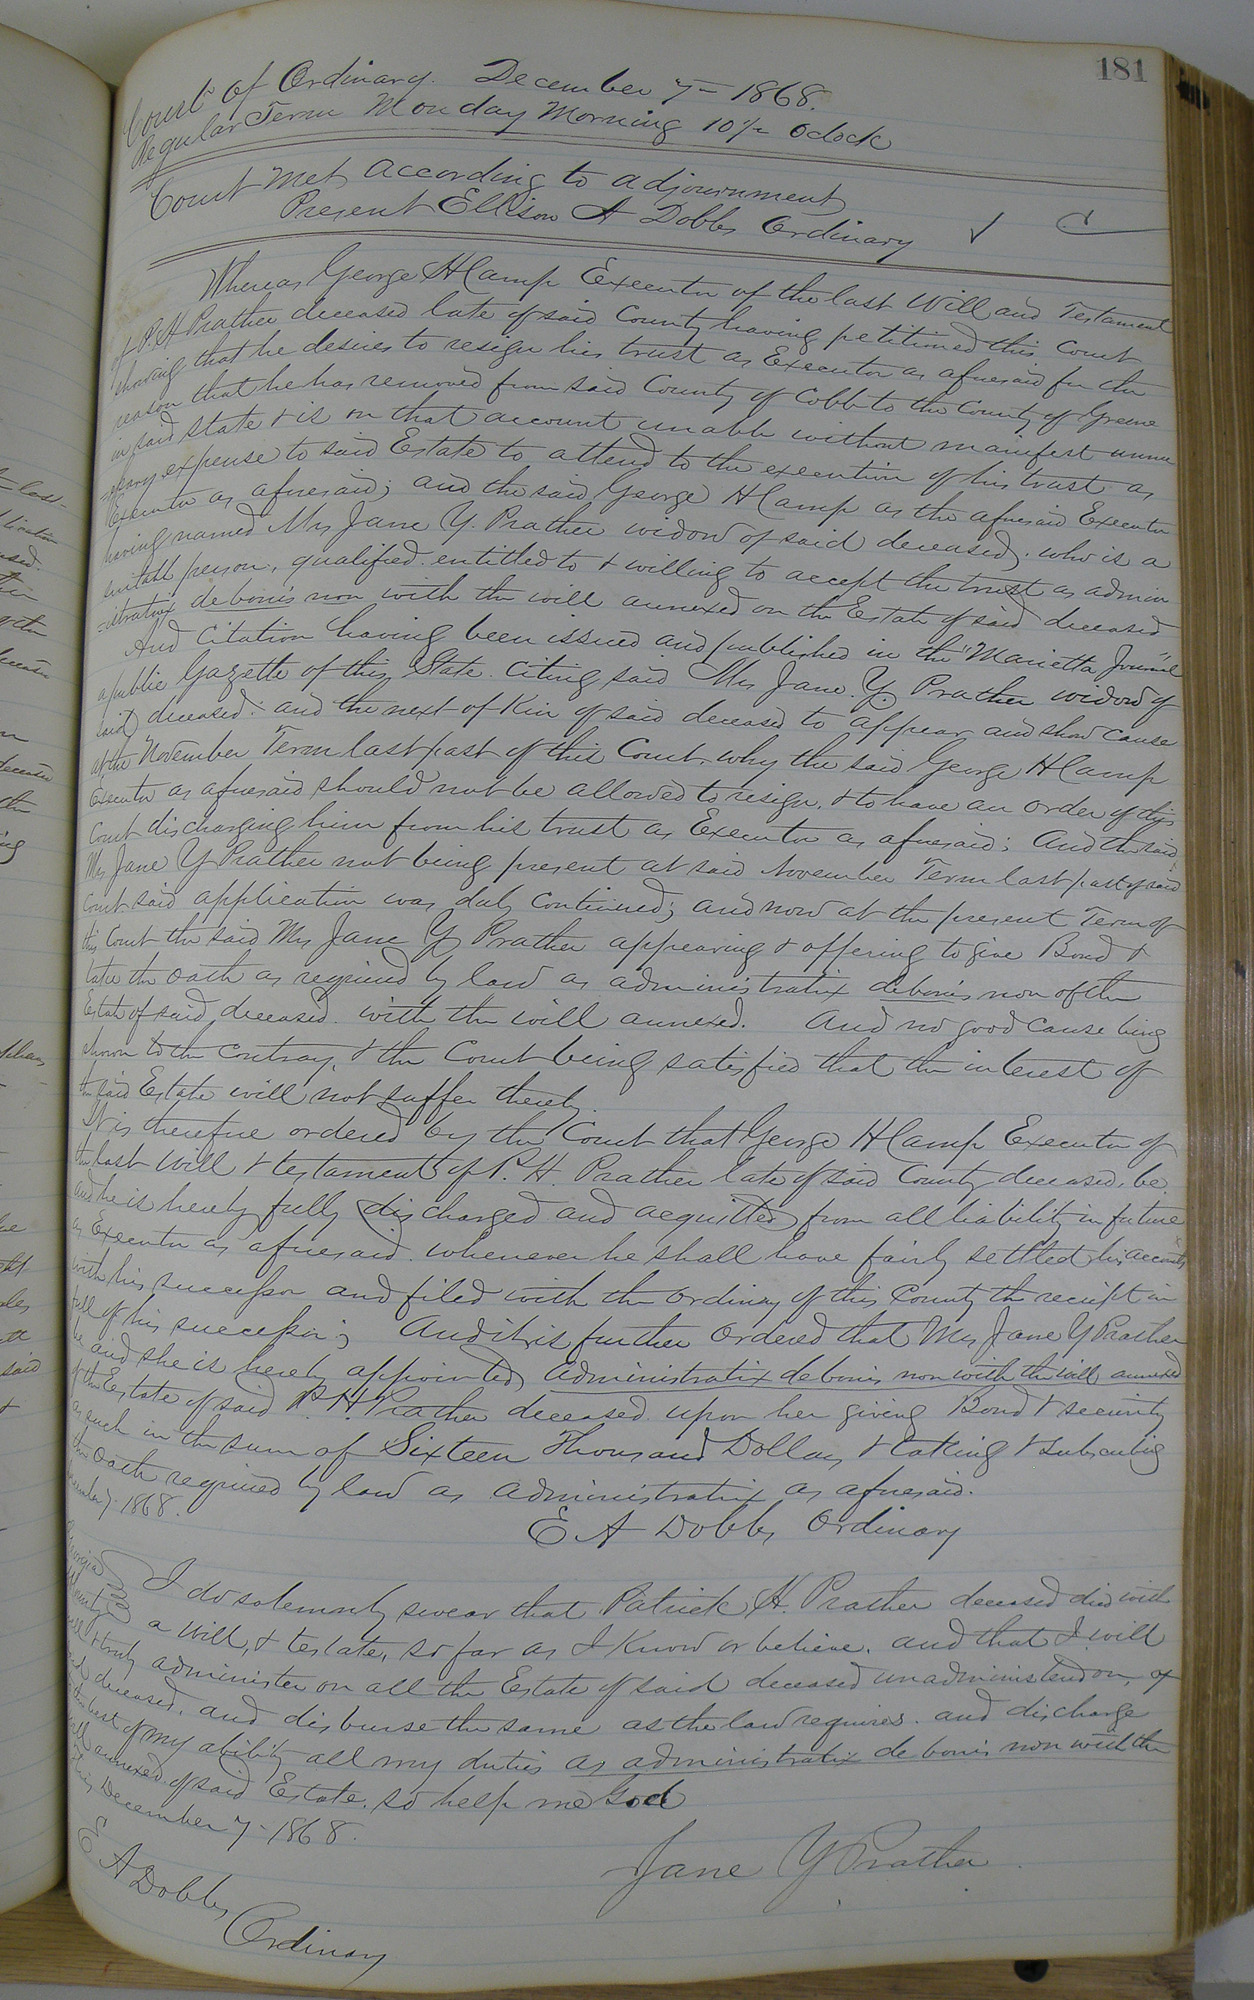 181
Court of Ordinary. December 7 - 1868.
Regular Term Monday Morning 10 1/2 Oclock
Court Met according to adjournment
Present Ellison A Dobbs Ordinary
Whereas George H Camp Executor of the last Will and Testament
of P. H Prather deceased late of said County having petitioned this Court
showing that he desires to resign his trust as Executor as aforesaid for the
reason that he has removed from said County of Cobb to the County of Greene
in said state & is on that account unable without manifest unne
=ssary expense to said Estate to attend to the execution of his trust as
Executor as aforesaid; and the said George H Camp as the aforesaid Executor
having named Mrs Jane Y. Prather widow of said deceased, who is a
suitable person, qualified, entitled to & willing to accept the trust as admin
=istratrix de bonis non with the will annexed on the Estate of said deceased
And Citation having been issued and published in the "Marietta Journal"
a public Gazette of this State. Citing said Mrs Jane. Y Prather widow of
said deceased: and the next of Kin of said deceased to appear and show cause
at the November Term last past of this Court, why the said George H Camp
Executor as aforesaid should not be allowed to resign, & to have an order of this
Court discharging him from his trust as Executor as aforesaid; And the said
Mrs Jane Y Prather not being present at said November Term last past of said
Court said application was duly Continued; and now at the present Term of
this Court the said Mrs Jane Y Prather appearing & offering to give Bond &
take the oath as required by law as administratrix de bonis non of the
Estate of said deceased with the will annexed. And no good cause being
shown to the Contrary, & the Court being satisfied that the interest of
the said Estate will not suffer thereby.
It is therefore ordered by the Court that George H Camp Executor of
the last Will & testament of P. H. Prather late of said County deceased, be
and he is hereby fully discharged and acquitted from all liability in future
as Executor as aforesaid whenever he shall have fairly settled his accounts
with his successor and filed with the Ordinary of this County the receipt in
full of his successor; And it is further Ordered that Mrs Jane Y Prather
be and she is hereby appointed administratrix de bonis non with the will annexed
of the Estate of said P. H. Prather deceased upon her giving Bond & security
as such in the sum of Sixteen Thousand Dollars & taking & subscribing
the Oath required by law as administratrix as aforesaid.
December 7. 1868.
E A Dobbs Ordinary
Georgia
I do solemnly swear that Patrick H. Prather deceased died with
a will, & testate, so far as I know or believe. and that I will
well & truly administer on all the Estate of said deceased unadministered on, of
said deceased, and disburse the same as the law requires. and discharge
to the best of my ability all my duties as administratrix de bonis non with the
will annexed of said Estate. so help me God
December 7 - 1868.
Jane Y Prather
E A Dobbs
Ordinary